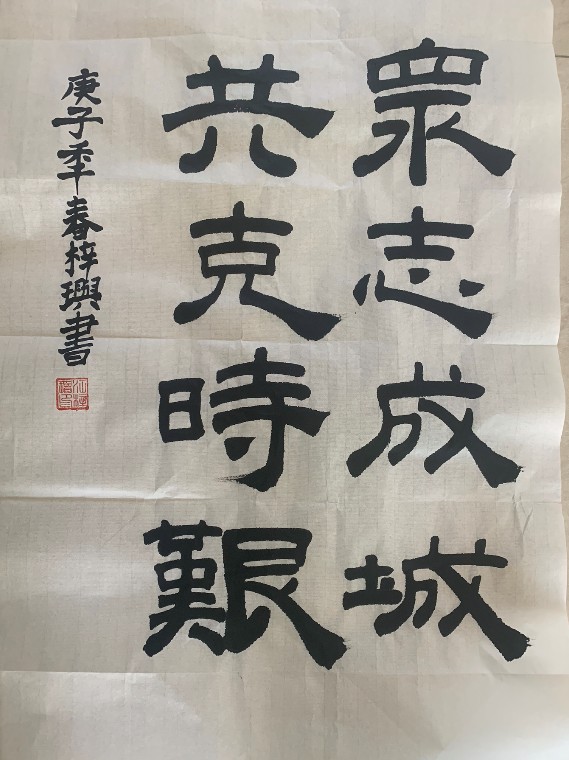 眾志成城
共克時艱
庚子季春梓興書